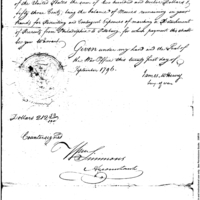 of the United States the sum of two hundred and twelve Dollars &
fifty three Cents, being the balance of Monies remaining in your
hands for Recruiting and Contingent Expences of marching a Detachment
of Recruits from Philadelphia to Pittsburg, for which payment this shall
be your Warrant.
Given under my hand and the Seal of
the War Office this twenty first day of
September 1796.
James McHenry
Secy of War
Dollars 212 53/100
Countersigned
Wm Simmons
Accountant